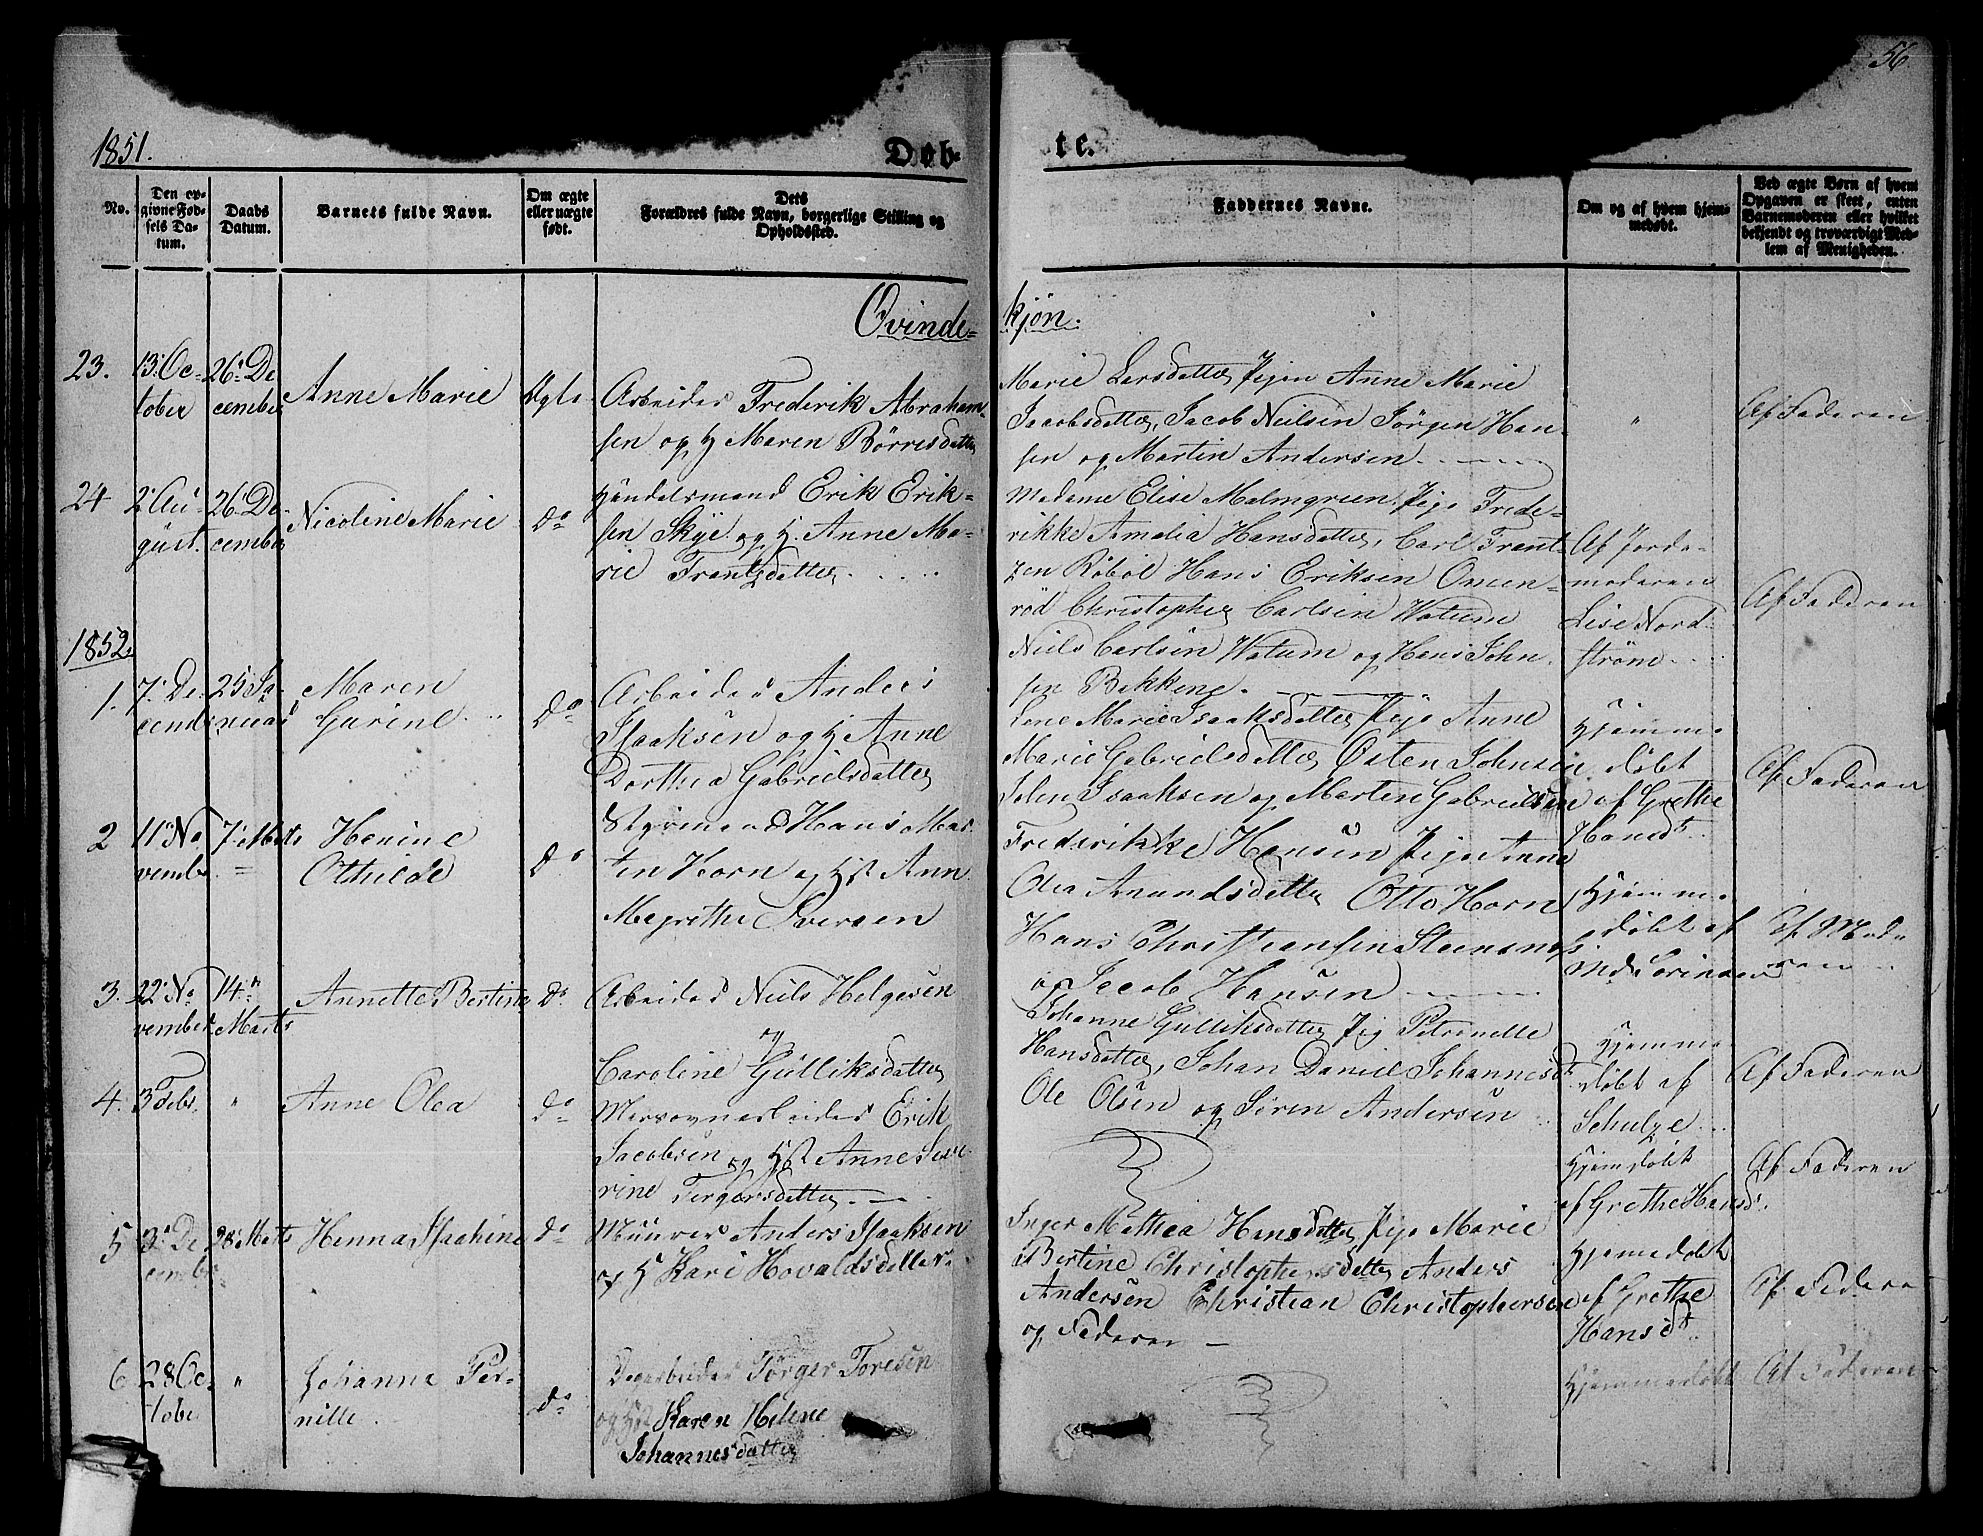 56
1851.
Døb-
te.
No.
Den op-
givne Fød-
sels Da-
tum.
Daabs
Datum.
Barnets fulde Navn.
Om ægte
eller uægte
født.
Dets
Forældres fulde Navn, borgerlige Stilling og
Opholdssted.
Faddernes Navne.
Om og af hvem hjem-
medøbt.
Ved ægte Børn af hvem
Opgaven er skeet, enten
Barnemoderen eller hvilket
bekjendt og troværdigt Med-
lem af Menigheden.
Qvinde-
kjøn.
23.
13. Oc-
tober
26. De
cember
Anne Marie
Ægte
Arbeider Frederik Abraham-
sen og H Maren Börresdatter
Marie Larsdatter, Pigen Anne Marie
Jacobsdatter, Jacob Neilsen Jörgen Han-
sen og Martin Andersen
Af Faderen
24
2. Au-
gust.
26. De-
cember
Nicoline Marie
Do
Handelsmand Erik Erik-
sen Skye og H. Anne Ma-
rie Frantzdatter
Madame Elise Malmgreen, Pige Frede-
rikke Amalia Hansdatter, Carl Frant-
zen Röböl Hans Eriksen Omen-
röd Christopher Carlsen Watum
Niels Carlsen Watum og Hans John
sen Bekkene.
Af Jorde-
moderen
Lise Nord-
ström
Af Faderen
1852.
1.
7. De-
cemb.
25 Ja-
nuar
Maren
Garine
Do
Arbeider Anders
Isaaksen og H Anne
Dorthea Gabrielsdatter
Lene Marie Isaaksdatter, Pige Anne
Marie Gabrielsdatter, Østen Johnsen
John Isaaksen og Marten Gabrielsen
Hjemme-
döbt
af Grethe
Hansdt.
Af Faderen
2
11. No
vembr
7. Marts
Henine
Othilde
Do
Styrmand Hans Mar-
ten Horn og Hst Ann
Megrethe Iversen
Frederikke Hansen, Pige Anne
Olea Amundsdatter Otto Horn
Hans Christiansen Steensnæs
og Jacob Hansen
Hjemme-
döbt af
Md. Sörinsen
Af Mode-
ren
3.
22. No
vember
14.
Marts
Annette Bertine
Do
Arbeider Neils Helgesen
og
Caroline Gulliksdatter
Johanne Gulliksdatter Pig Petronelle
Hansdatter, Johan Daniel Johannesdt
Ole Olsen og Sören Andersen
Hjemme-
döbt af
Schulze
Af Faderen
4.
3 Febr.
"
Anne Olea
Do
Masovnarbeider Erik
Jacobsen og Hst Anne Seve-
rine Torgersdatter
Hjemdöbt
af Grethe Hansd.
Af Faderen
5
3. De
cembr.
28. Marts
Henna Isachine
Do
Muurer Anders Isaaksen
og H Kari Hovaldsdatter
Inger Mathea Hansdatter, Pige Marie
Bertine Christophersdatter Anders
Andersen Christian Christophersen
og Faderen
Hjemmedöbt
af Grethe
Hansdt.
Af Fadere
6
28 Oc-
tober
"
Johanna Per-
nille
Do
Dagarbeider Törger Toresen
og Hst Karen Helene
Johannesdatter
Hjemmedöbt
Af Faderen